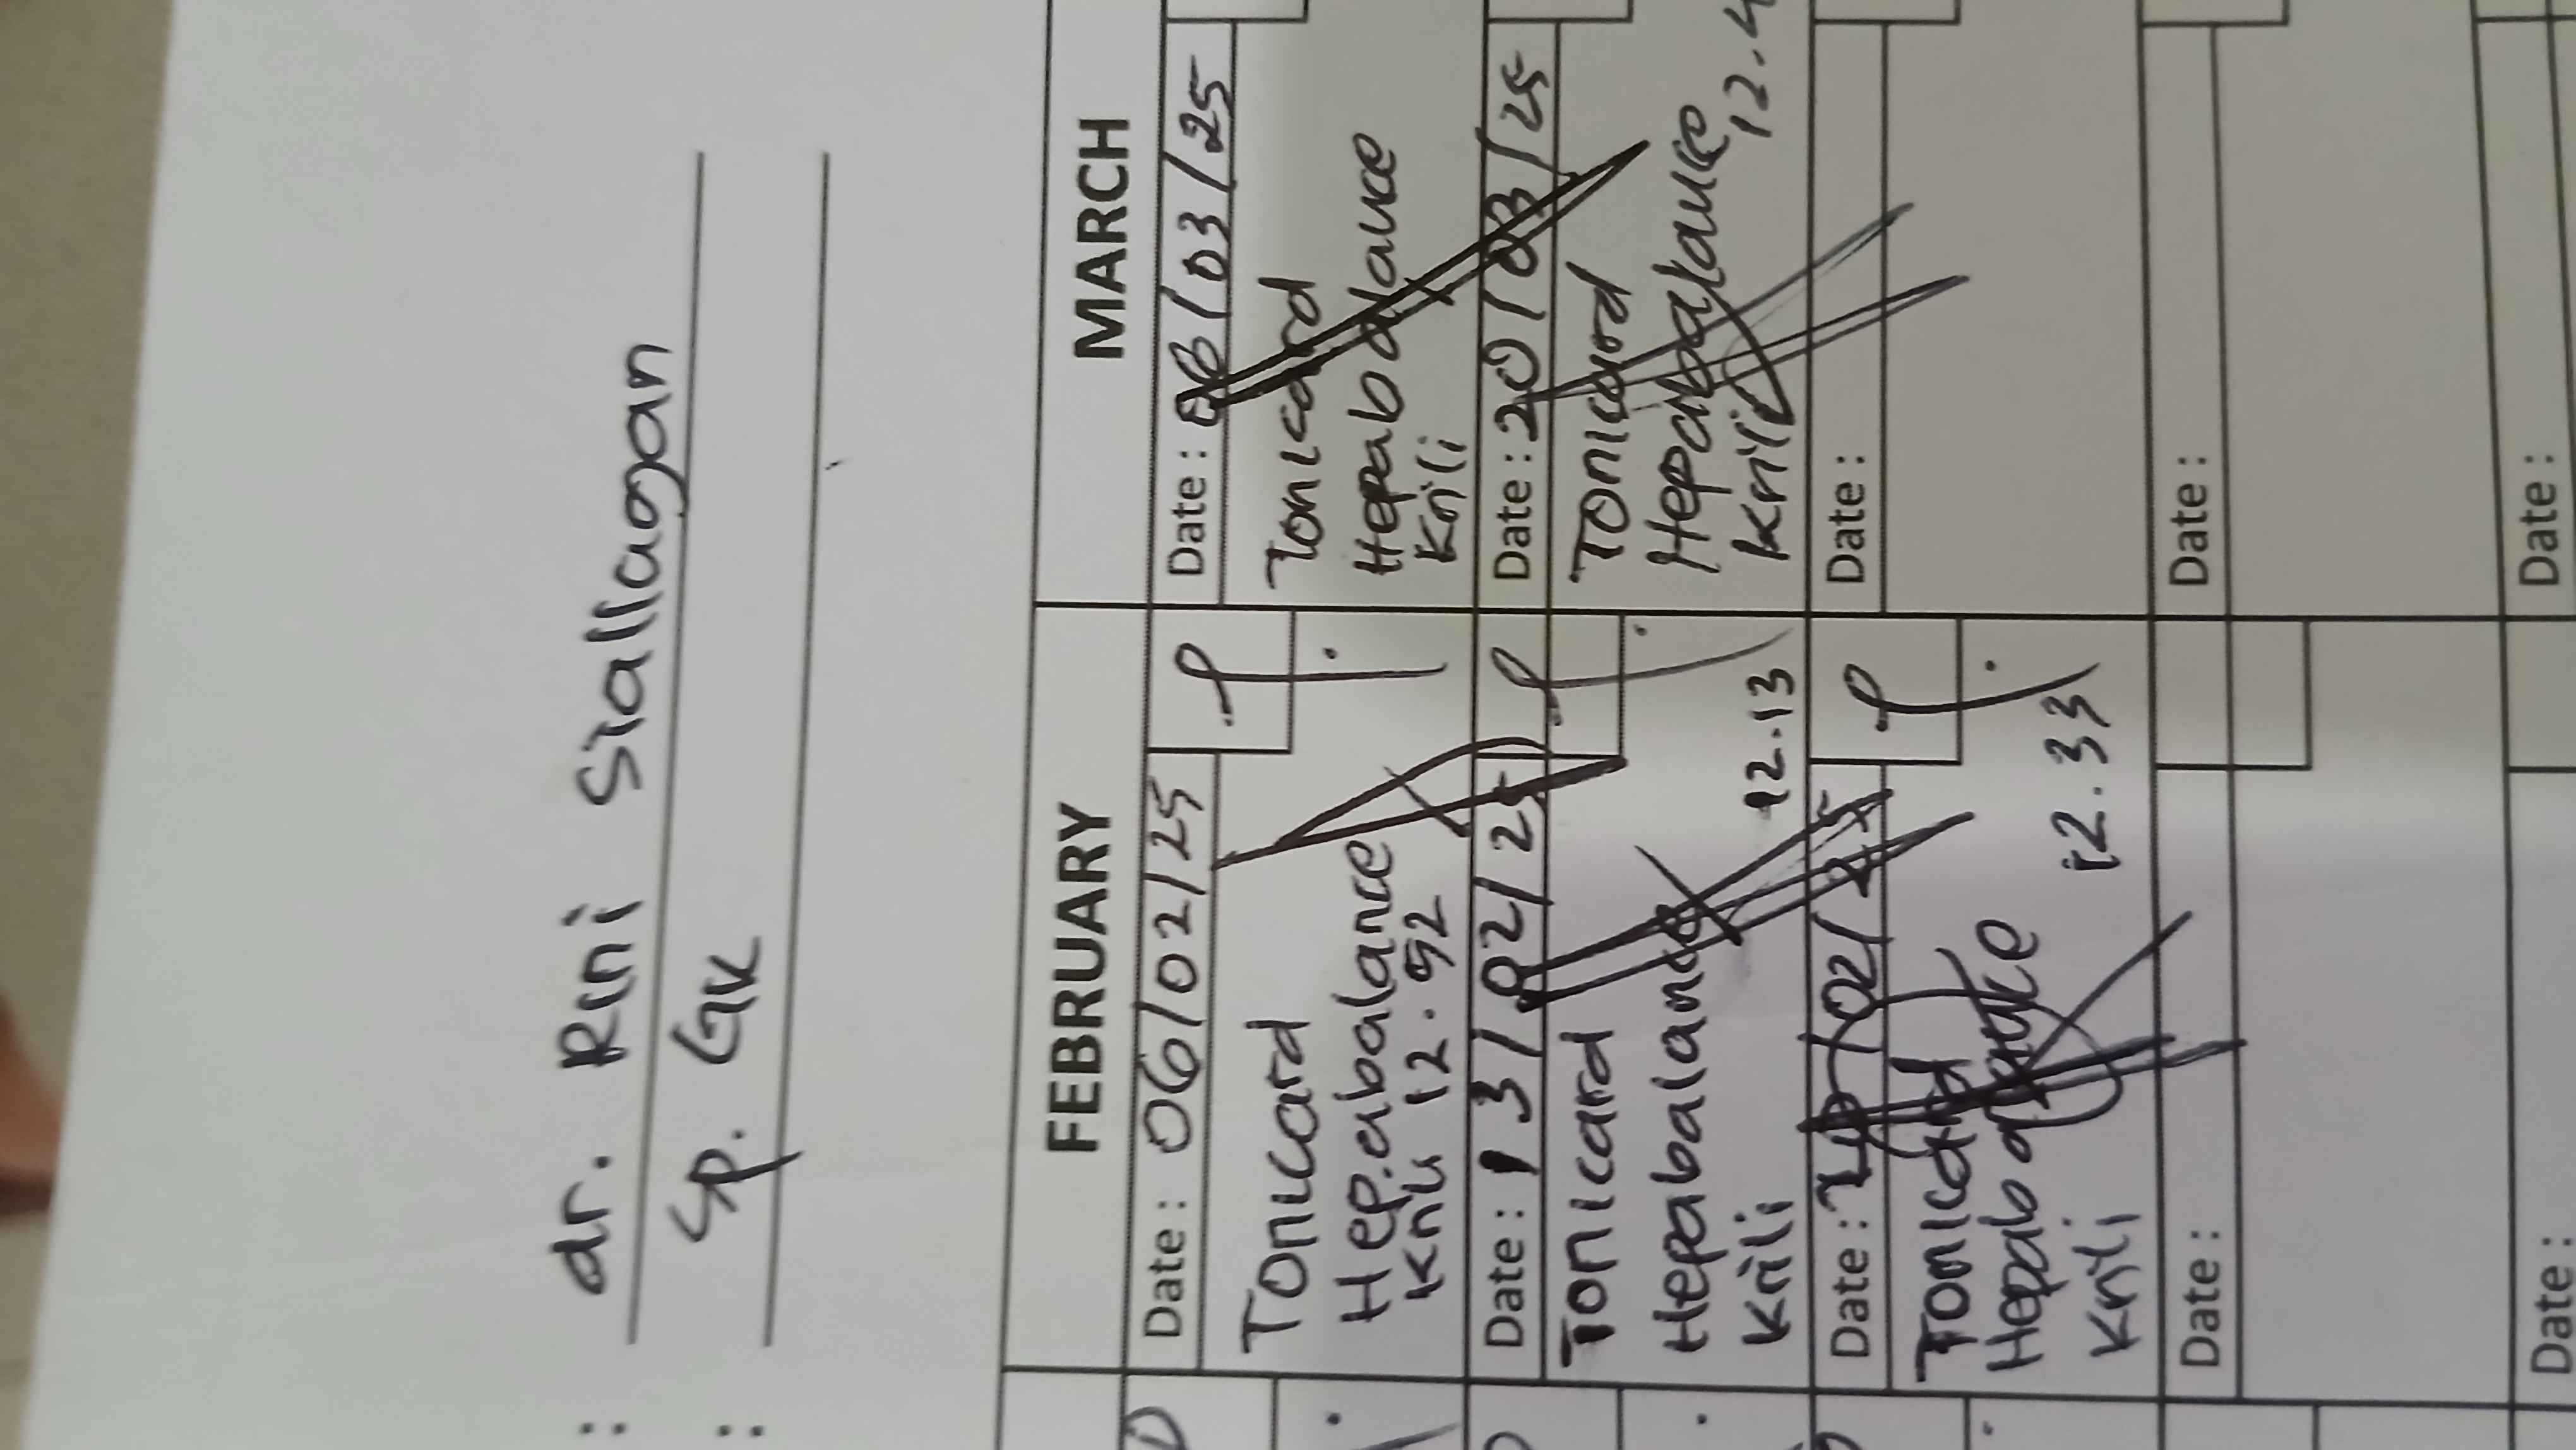 : dr. Rini Siallagan
: Sp. GK
FEBRUARY
Date : 06/02/25
Tonicard
Hepabalance
Krili 12.52
Date : 13/02/25
Tonicard
Hepabalance
Krili
12.13
Date : /02/25
Tonicard
Hepabalance
Krili
12.33
Date :
Date :
MARCH
Date : 06/03/25
Tonicard
Hepabalance
Krili
Date : 20/03/25
Tonicard
Hepabalance
Krili
Date :
Date :
Date :